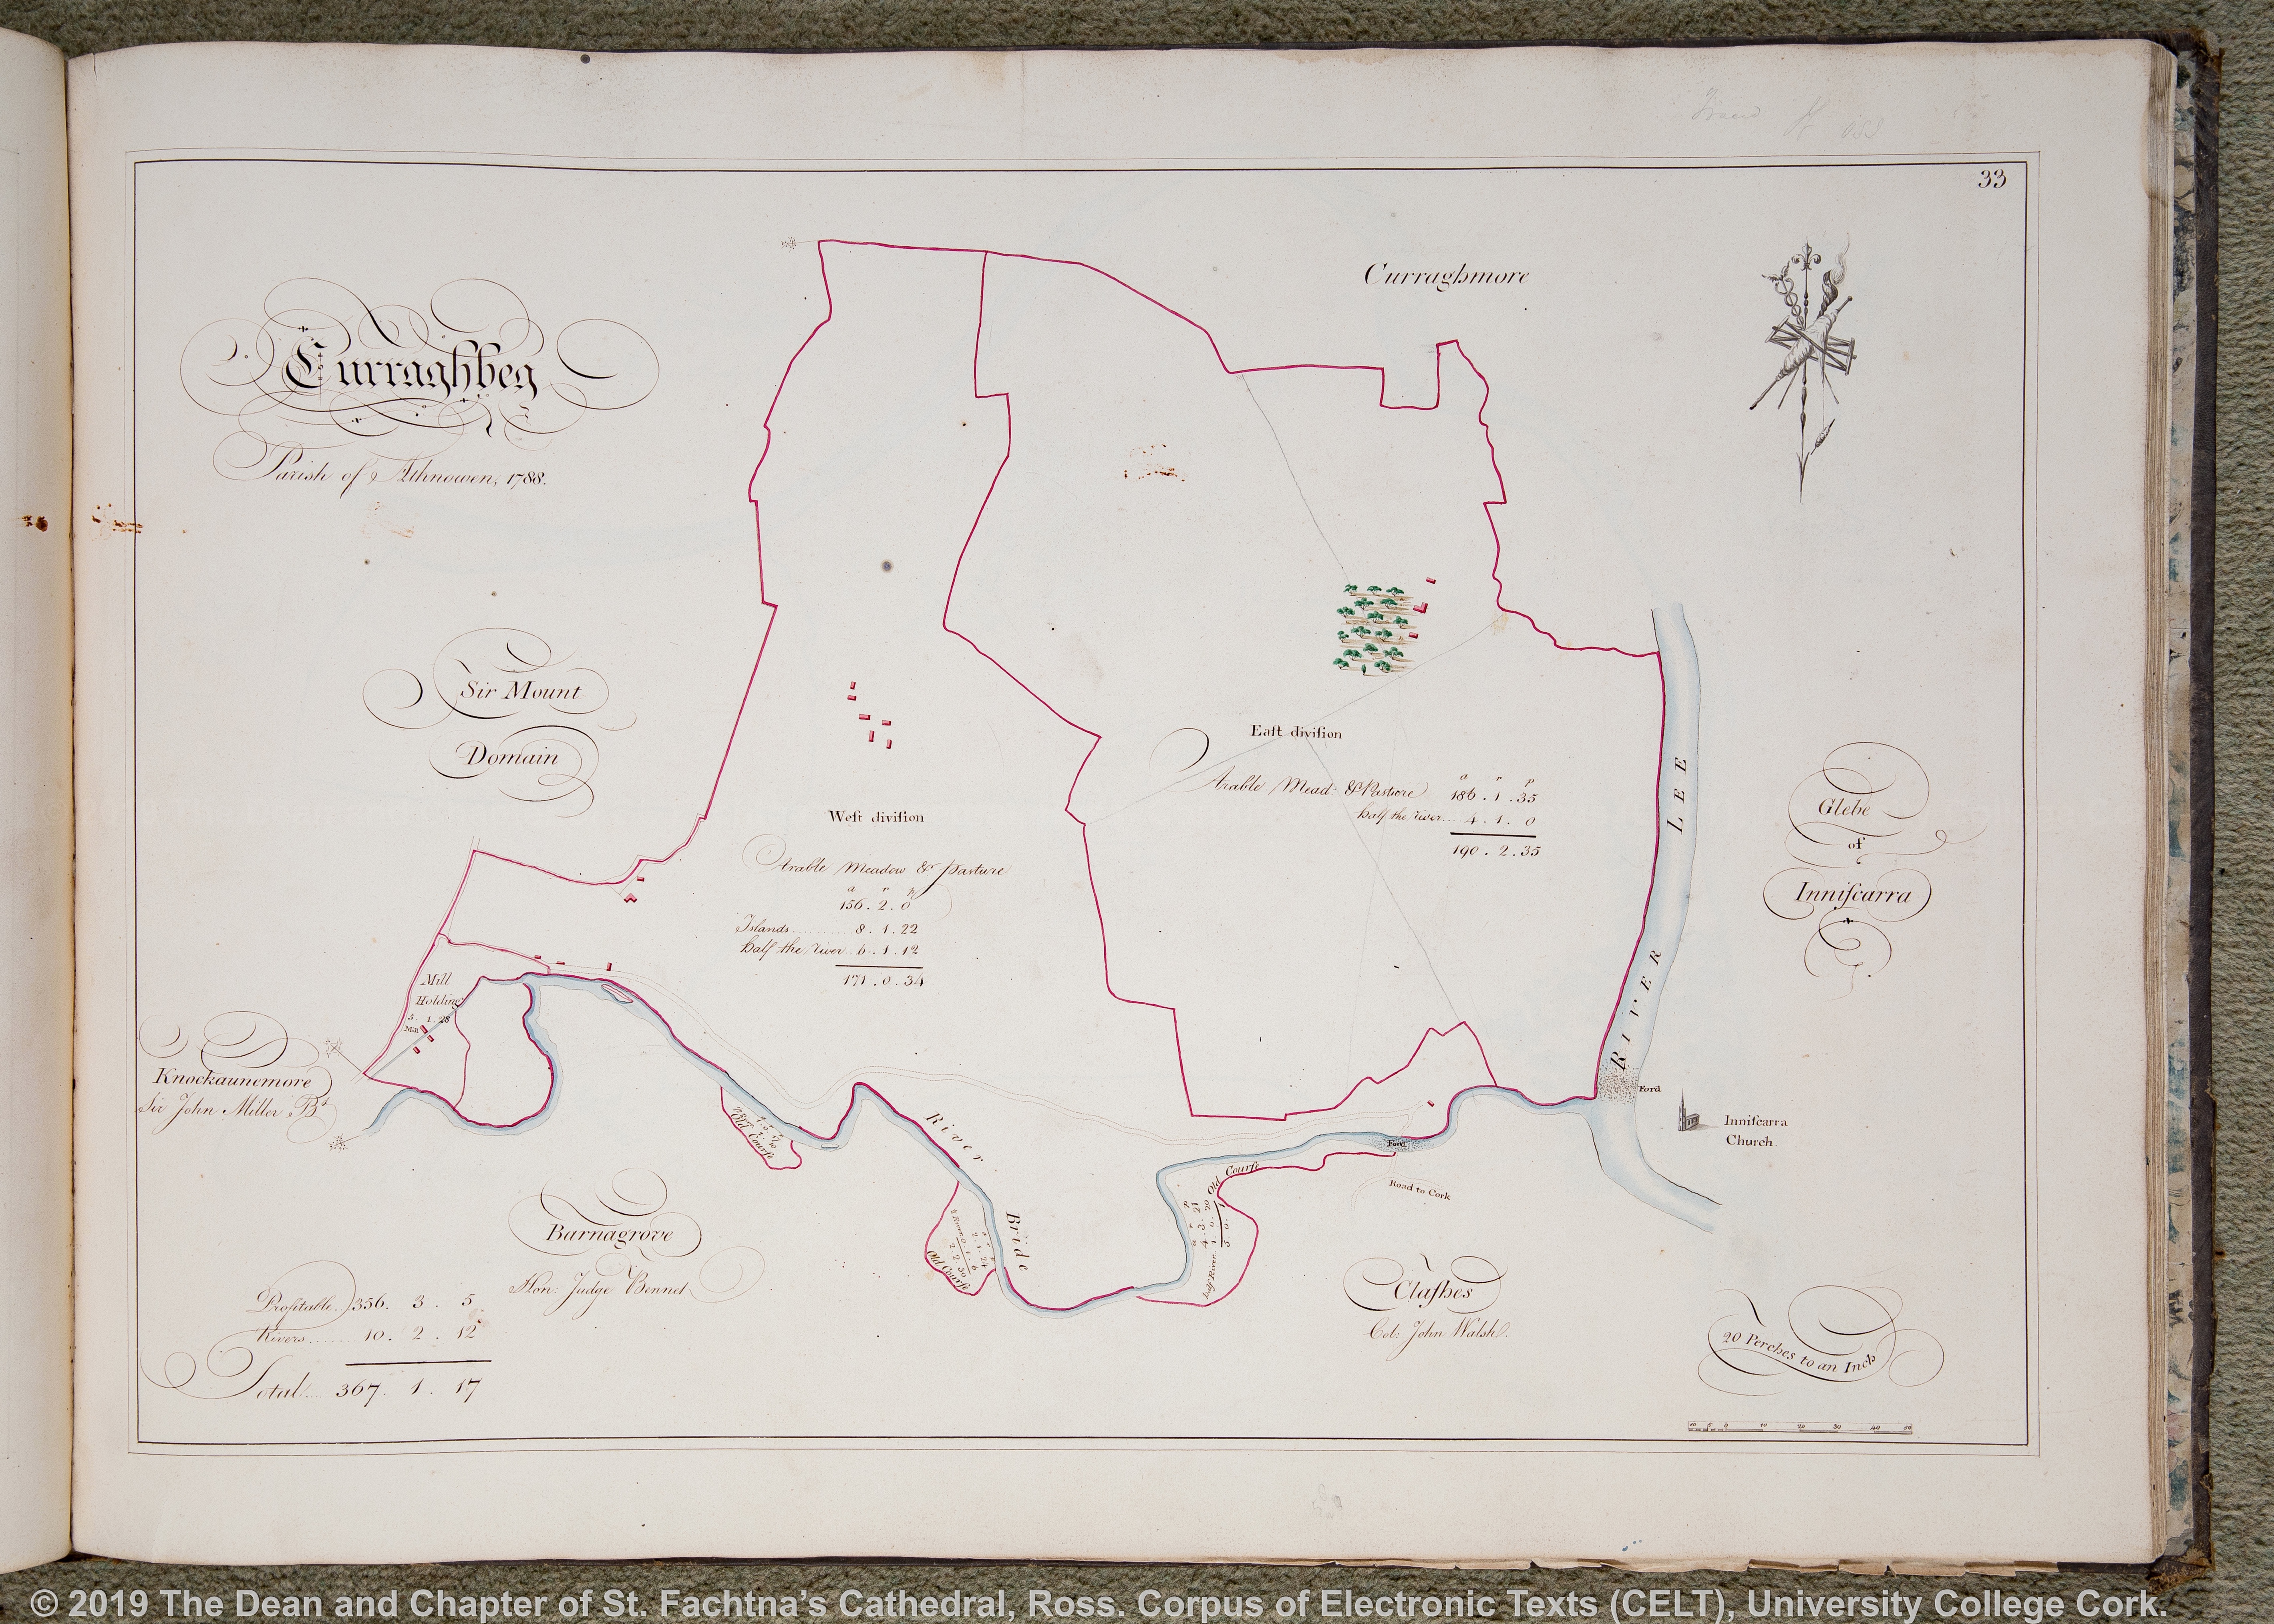 33
Curraghmore
Curraghbeg
Parish of Athnowen, 1788.
Sir Mount
Domain
East division
Arable Mead: & Pasture
a r p
186 . 1 . 35
half the river.... 4 . 1 . 0
190 . 2 . 35
West division
Arable Meadow & Pasture
a r p
156 . 2 . 0
Islands............ 8 . 1 . 22
half the river.. 6 . 1 . 12
171 . 0 . 34
RIVER LEE
Glebe
of
Inniscarra
Mill
Holding
5 . 1 . 28
Mill
Knockaunemore
Sir John Miller Bt
Ford
Inniscarra
Church.
River Bride
Old Course
Old Course
2 . 2 . 30
Old Course
a r p
4 . 3 . 21
half River . 1 . 0 . 20
Ford
Road to Cork
Barnagrove
Hon: Judge Bennet
Clashes
Col: John Walsh.
Profitable. 356. 3 . 5
Rivers........ 10 . 2 . 12
Total.... 367. 1 . 17
20 Perches to an Inch
10 5 0 10 20 30 40 50
© 2019 The Dean and Chapter of St. Fachtna’s Cathedral, Ross. Corpus of Electronic Texts (CELT), University College Cork.